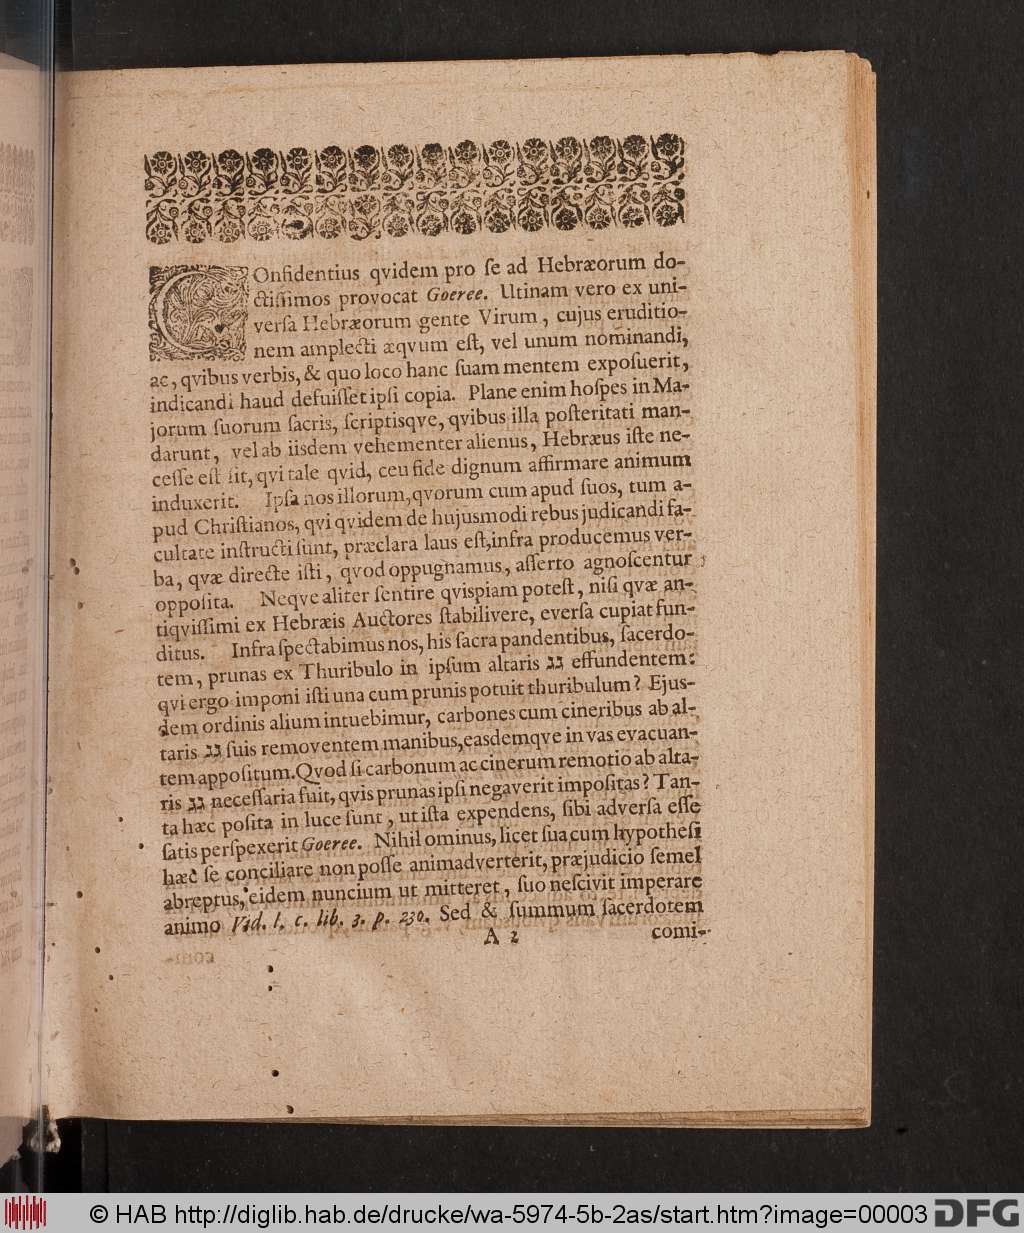 COnfidentius qvidem pro ſe ad Hebræorum do-
ctiſſimos provocat Goeree. Utinam vero ex uni-
verſa Hebræorum gente Virum, cujus eruditio-
nem amplecti æqvum eſt, vel unum nominandi,
ac, qvibus verbis, & quo loco hanc ſuam mentem expoſuerit,
indicandi haud defuiſſet ipſi copia. Plane enim hoſpes in Ma-
jorum ſuorum ſacris, ſcriptisqve, qvibus illa poſteritati man-
darunt, vel ab iisdem vehementer alienus, Hebræus iſte ne-
ceſſe eſt ſit, qvi tale qvid, ceu fide dignum affirmare animum
induxerit. Ipſa nos illorum, qvorum cum apud ſuos, tum a-
pud Chriſtianos, qvi qvidem de hujusmodi rebus judicandi fa-
cultate inſtructi ſunt, præclara laus eſt, infra producemus ver-
ba, qvæ directe iſti, qvod oppugnamus, aſſerto agnoſcentur
oppoſita. Neqve aliter ſentire qvispiam poteſt, niſi qvæ an-
tiqviſſimi ex Hebræis Auctores ſtabilivere, everſa cupiat fun-
ditus. Infra ſpectabimus nos, his ſacra pandentibus, ſacerdo-
tem, prunas ex Thuribulo in ipſum altaris גג effundentem:
qvi ergo imponi iſti una cum prunis potuit thuribulum? Ejus-
dem ordinis alium intuebimur, carbones cum cineribus ab al-
taris גג ſuis removentem manibus, easdemqve in vas evacuan-
tem appoſitum. Qvod ſi carbonum ac cinerum remotio ab alta-
ris גג neceſſaria fuit, qvis prunas ipſi negaverit impoſitas? Tan-
ta hæc poſita in luce ſunt, ut iſta expendens, ſibi adverſa eſſe
ſatis perſpexerit Goeree. Nihil ominus, licet ſua cum hypotheſi
hæc ſe conciliare non poſſe animadverterit, præjudicio ſemel
abreptus, eidem nuncium ut mitteret, ſuo neſcivit imperare
animo Vid. l. c. lib. 3. p. 230. Sed & ſummum ſacerdotem
A 2 comi-
© HAB http://diglib.hab.de/drucke/wa-5974-5b-2as/start.htm?image=00003 DFG